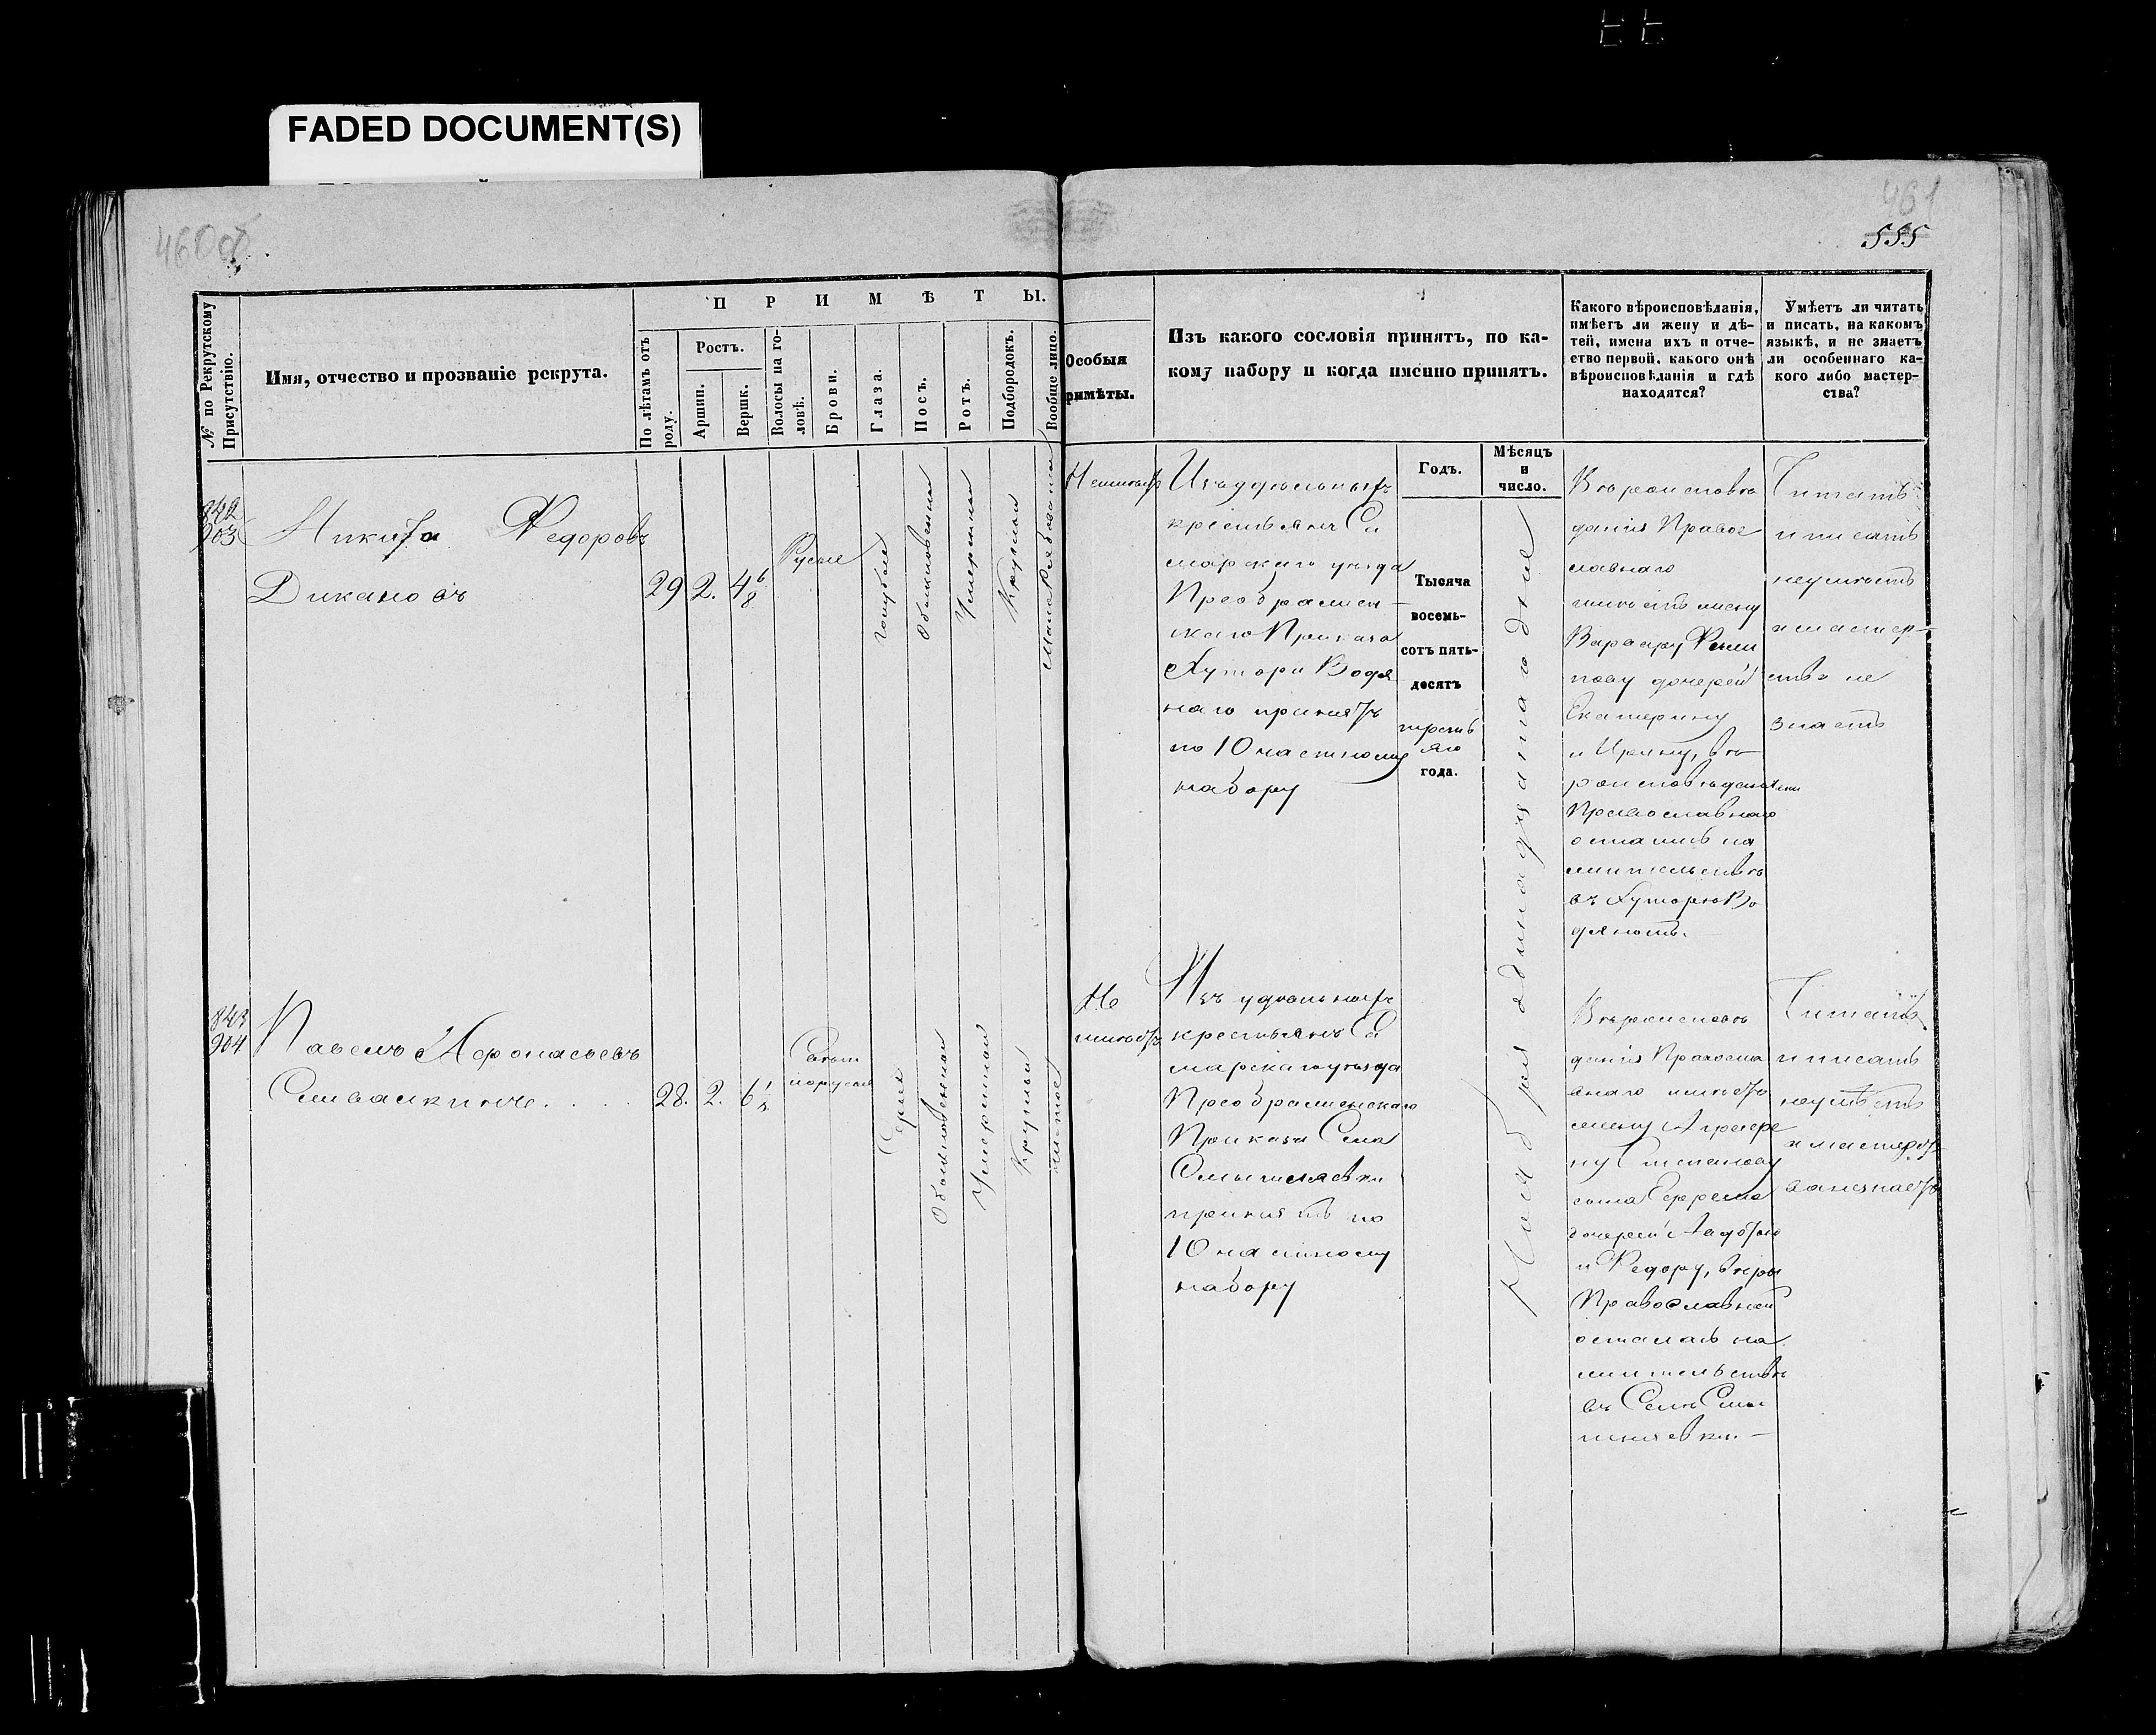 FADED DOCUMENT(S)
460об.
461
555
№ по Рекрутскому Присутствію.
Имя, отчество и прозваніе рекрута.
ПРИМѢТЫ.
По лѣтамъ отъ роду.
Ростъ.
Аршин.
Вершк.
Волосы на головѣ.
Брови.
Глаза.
Носъ.
Ротъ.
Подбородокъ.
Вообще лицо.
Особыя
римѣты.
Изъ какого сословія принятъ, по ка-
кому набору и когда именно принятъ.
Какого вѣроисповѣданія,
имѣетъ ли жену и дѣ-
тей, имена ихъ и отче-
ство первой, какого онѣ
вѣроисповѣданія и гдѣ
находятся?
Умѣетъ ли читать
и писать, на какомъ
языкѣ, и не знаетъ
ли особеннаго ка-
кого либо мастер-
ства?
Годъ.
Мѣсяцъ
и
число.
842
903
Никита Федоровъ
Дикановъ
29
2.
4 6/8
Русые
голубые
обыкновенный
Умеренный
Круглый
Неимѣетъ
Изъ удѣльныхъ
крестьянъ Са
марскаго уѣзда
Преображен-
скаго Приказа
Хутора Водя
наго принятъ
по 10 частному
набору
Тысяча
восемь-
сотъ пять-
десятъ
третьяго
года.
Ноября одинадцатаго дня
Вѣроисповѣ
данія Правос
лавнаго
имѣетъ жену
Варвару Фили
пову дочерей
Екатерину
и Ирину, вѣ-
роисповѣданія
Православнаго
остались на
жительствѣ
въ Хуторѣ Во
дяномъ.
Читать
и писать
неумѣетъ
и мастер-
ства не
знаетъ
843
904
Павелъ Афонасьевъ
28.
2.
6 1/8
Свѣтло
русые
Серые
Обыкновенный
Умеренный
Круглый
чистое
Не
имѣетъ
Изъ удѣльныхъ
крестьянъ Са
марскаго уѣзда
Преображенскаго
Приказа Села
Смышляевки
принятъ по
10 частному
набору
Вѣроисповѣ
данія Правосла
внаго имѣетъ
жену Аграфе
ну Степанову
сына Ефрема
дочерей
и Федору, вѣры
Православной
остались на
жительствѣ
въ Селѣ Смы
шляевки.-
Читать
и писать
неумѣетъ
и мастерст
ва незнаетъ